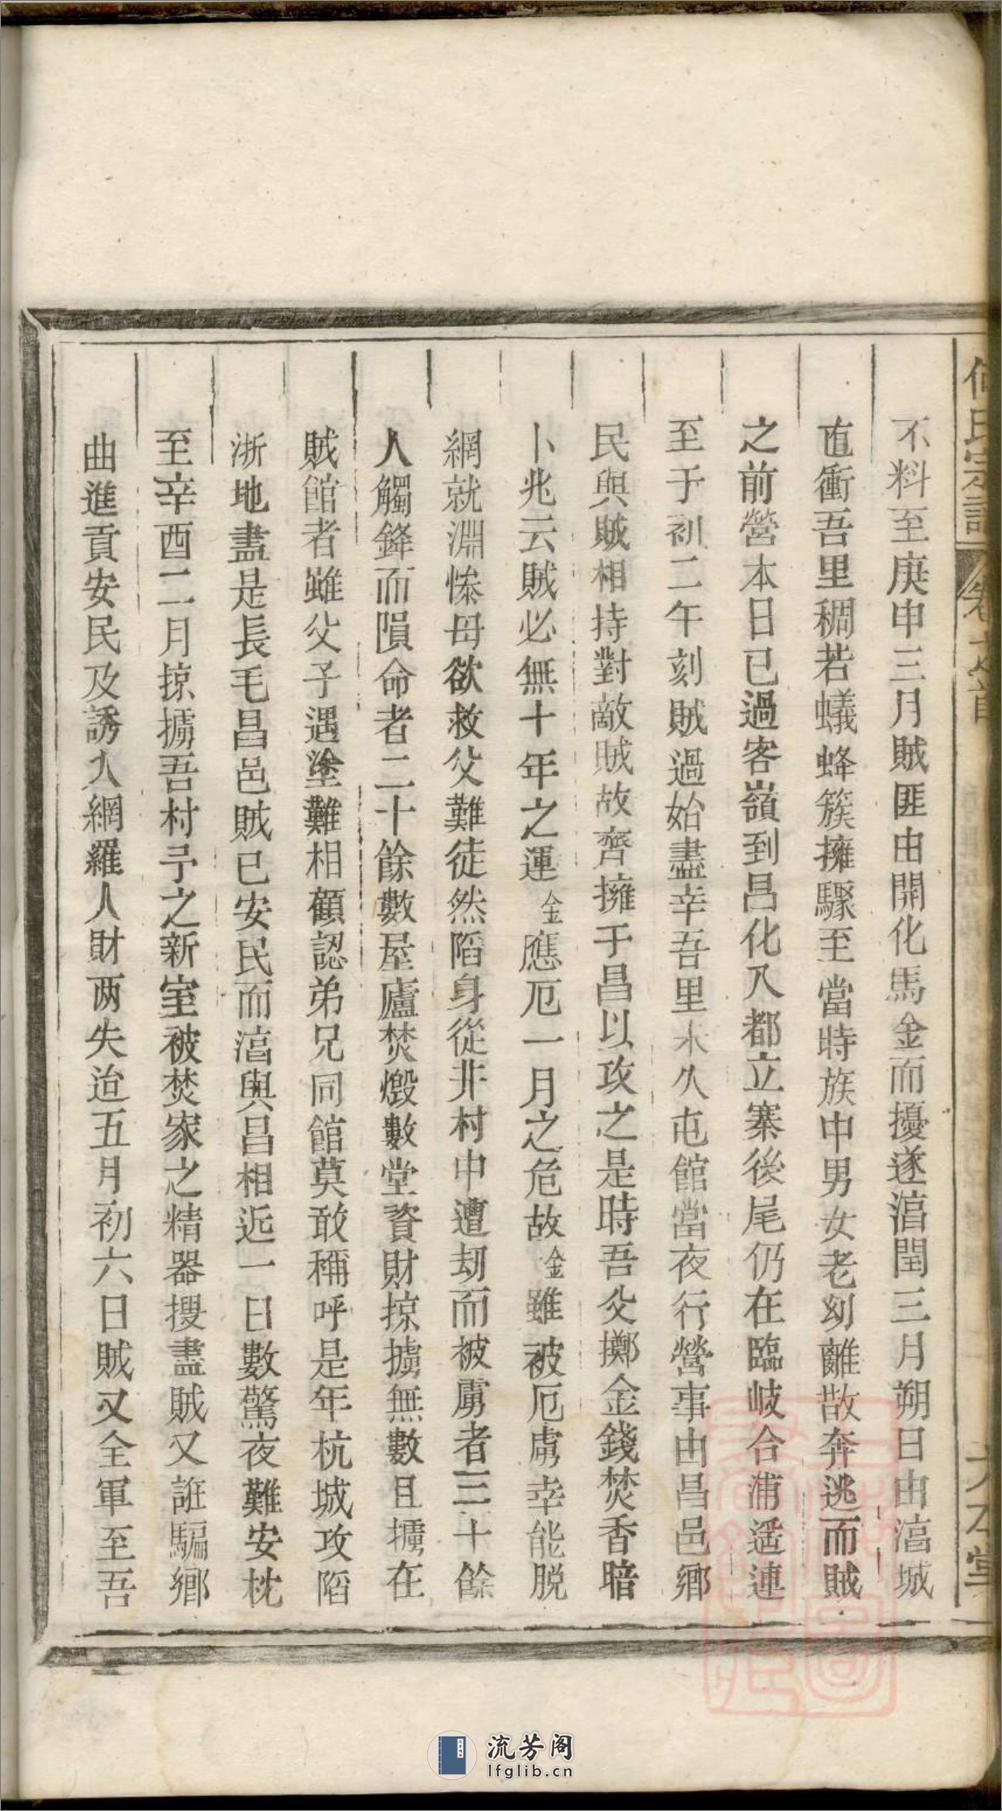 不料至庚申三月賊匪由開化馬金而擾遂淳閏三月朔日由淳城
直衝吾里稠若蟻蜂簇擁驟至當時族中男女老幼離散奔逃而賊
之前營本日已過客嶺到昌化八都立寨後尾仍在臨岐合浦遥連
至于初二午刻賊過始盡幸吾里未久屯館當夜行營事由昌邑鄉
民與賊相持對敵賊故齊擁于昌以攻之是時吾父擲金錢焚香暗
卜兆云賊必無十年之運金應厄一月之危故金雖被厄虜幸能脱
網就淵慘母欲救父難徒然陷身從井村中遭刧而被虜者三十餘
人觸鋒而隕命者二十餘數屋廬焚燬數堂資財掠擄無數且擄在
賊館者雖父子遇塗難相顧認弟兄同館莫敢稱呼是年杭城攻陷
浙地盡是長毛昌邑賊已安民而淳與昌相近一日數驚夜難安枕
至辛酉二月掠擄吾村予之新室被焚家之精器搜盡賊又誑騙鄉
曲進貢安民及誘入網羅人財两失迨五月初六日賊又全軍至吾
流芳阁
lfglib.cn